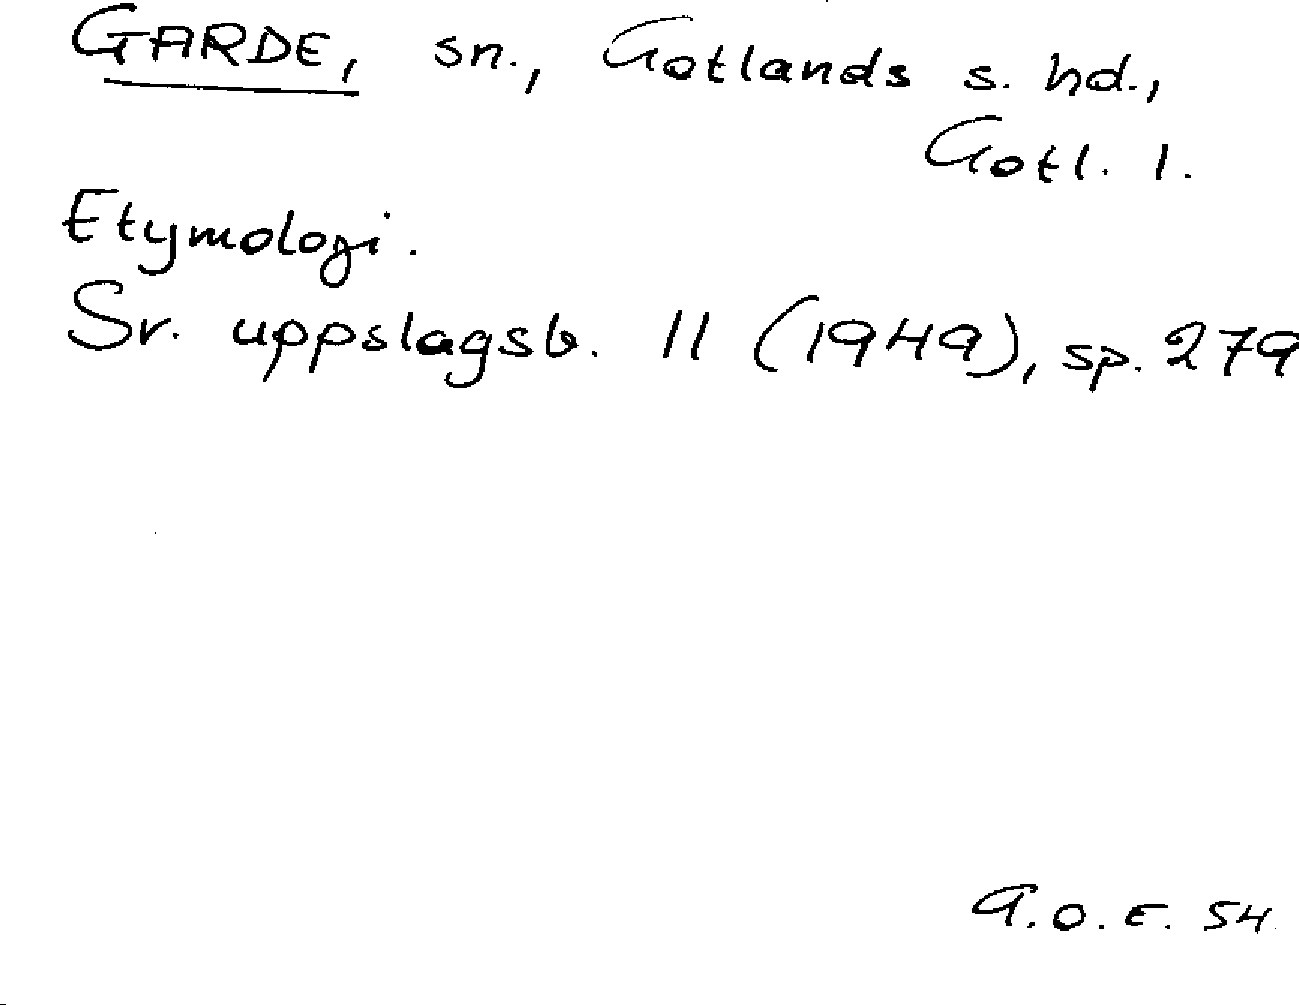 GARDE, sn., Gotlands s. hd.,
Gotl. l.
Etymologi.
Sv. uppslagsb. 11 (1949), sp. 279
A.O.E. 54